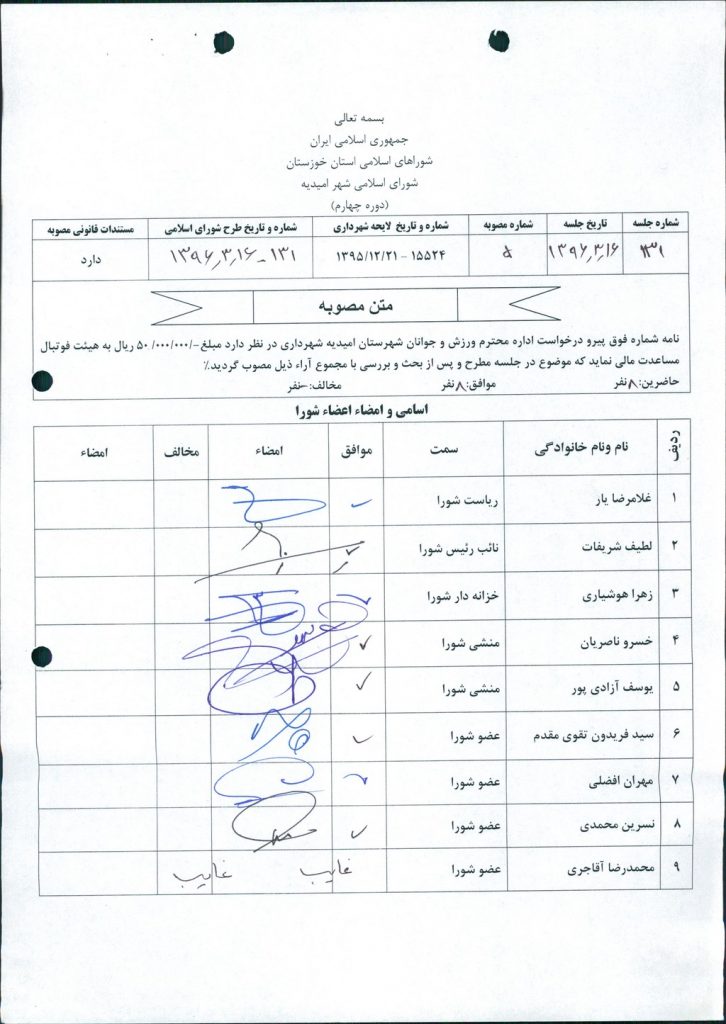 بسمه تعالی
جمهوری اسلامی ایران
شوراهای اسلامی استان خوزستان
شورای اسلامی شهر امیدیه
(دوره چهارم)
شماره جلسه تاریخ جلسه شماره مصوبه شماره و تاریخ لایحه شهرداری شماره و تاریخ طرح شورای اسلامی مستندات قانونی مصوبه
۱۳۱ ۱۳۹۶٫۳٫۱۶ ۵ ۱۵۵۲۴ - ۱۳۹۵/۱۲/۲۱ ۱۳۱ - ۱۳۹۶٫۳٫۱۶ دارد
متن مصوبه
نامه شماره فوق پیرو درخواست اداره محترم ورزش و جوانان شهرستان امیدیه شهرداری در نظر دارد مبلغ-/۵۰/۰۰۰/۰۰۰ ریال به هیئت فوتبال
مساعدت مالی نماید که موضوع در جلسه مطرح و پس از بحث و بررسی با مجموع آراء ذیل مصوب گردید./
حاضرین:۸نفر موافق:۸نفر مخالف:-نفر
اسامی و امضاء اعضاء شورا
ردیف نام ونام خانوادگی سمت موافق امضاء مخالف امضاء
۱ غلامرضا یار ریاست شورا
۲ لطیف شریفات نائب رئیس شورا
۳ زهرا هوشیاری خزانه دار شورا
۴ خسرو ناصریان منشی شورا
۵ یوسف آزادی پور منشی شورا
۶ سید فریدون تقوی مقدم عضو شورا
۷ مهران افضلی عضو شورا
۸ نسرین محمدی عضو شورا
۹ محمدرضا آقاجری عضو شورا غایب غایب